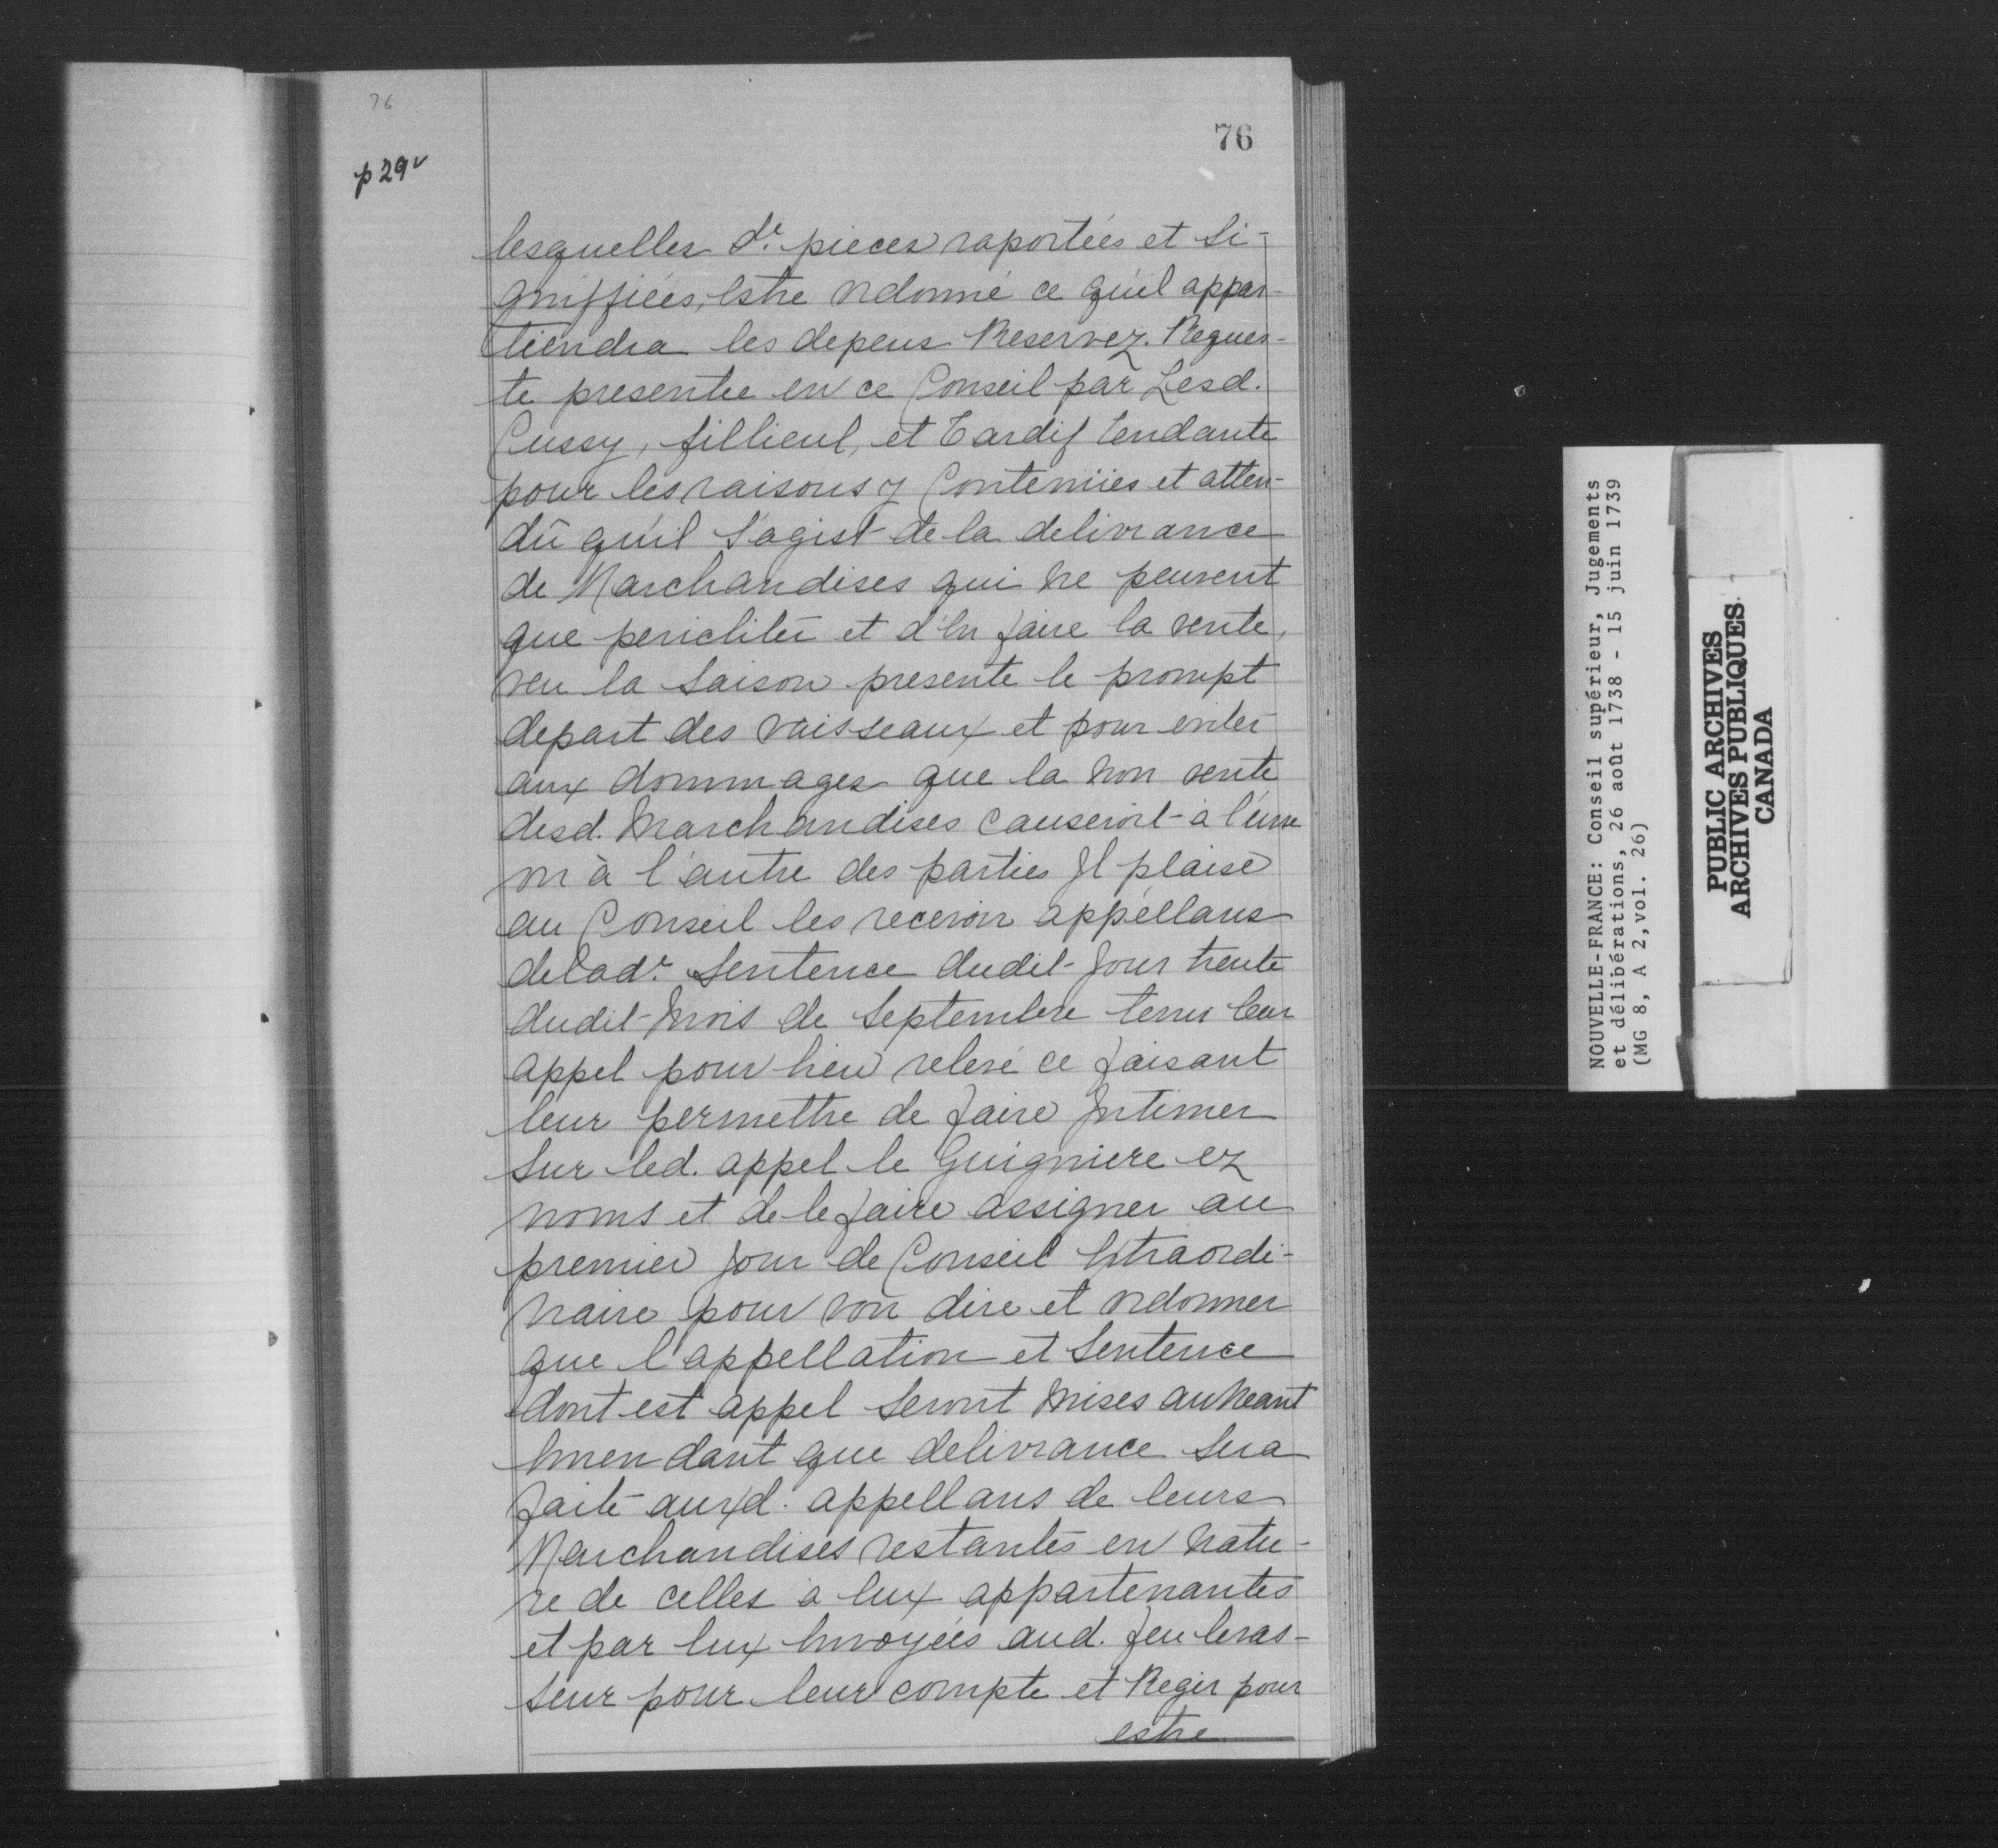 76
76
p 29v
lesquelles de. pieces raportées et Si-
gniffiées, Estre ordonné ce qu'il appar-
tiendra les depens Reservez. Reques-
te presentée en ce Conseil par Lesd.
Cussy, fillieul, et Tardif tendante
pour les raisons y Contenües et atten-
dû qu'il s'agist de la delivrance
de Marchandises qui ne peuvent
que pericliter et d'En faire la vente,
veu la Saison presente le prompt
depart des vaisseaux et pour eviter
aux dommages que la non vente
desd. Marchandises Causeroit à l'une
ou à l'autre des parties Il plaise
au Conseil les recevoir appellans
delade. Sentence dudit Jour trente
dudit Mois de Septembre tenir leur
appel pour bien relevé ce faisant
leur permettre de faire Intimer
sur led. appel le Guigniere ez
noms et de le faire assigner au
premier Jour de Conseil Extraordi-
naire pour voir dire et ordonner
que l'appellation et Sentence
dont est appel Seront Mises au Neant
Emendant que delivrance Sera
faite auxd. appellans de leurs
Marchandises restantes en Natu-
re de celles à Eux appartenantes
et par Eux Envoyées aud. feu levas-
seur pour leur compte et Regir pour
estre
NOUVELLE-FRANCE: Conseil supérieur, Jugements
et délibérations, 26 août 1738 - 15 juin 1739
(MG 8, A 2,vol. 26)
PUBLIC ARCHIVES
ARCHIVES PUBLIQUES
CANADA